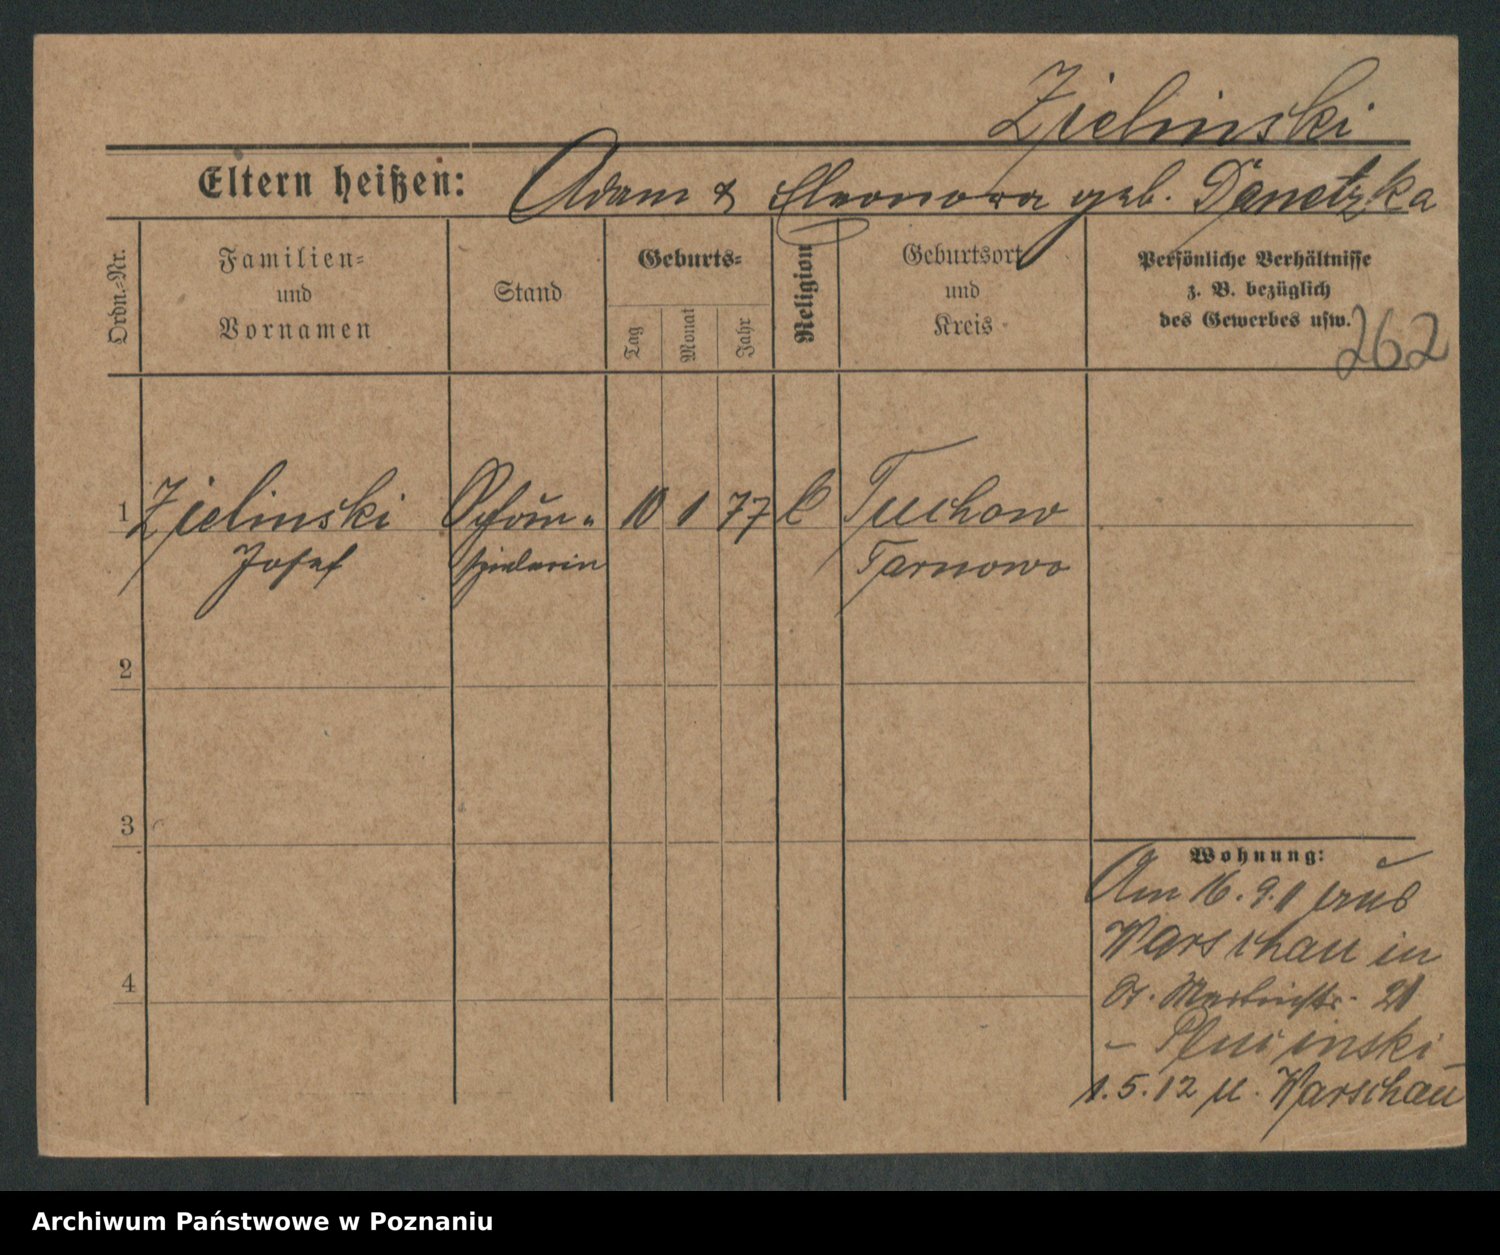 Zielinski
Eltern heißen: Adam & Eleonora geb. Danetzka
Ordn.-Nr.
Familien-
und
Vornamen
Stand
Geburts-
Tag
Monat
Jahr
Religion
Geburtsort
und
Kreis
Persönliche Verhältnisse
z. B. bezüglich
des Gewerbes usw.
262
1 Zielinski Schau- 10 1 77 C Tuchow
Josef spielerin Tarnowo
2
3
4
Wohnung:
Am 16.9.11 aus
Warschau in
St. Martinstr. 21
-
1.5.12 n. Warschau
Archiwum Państwowe w Poznaniu